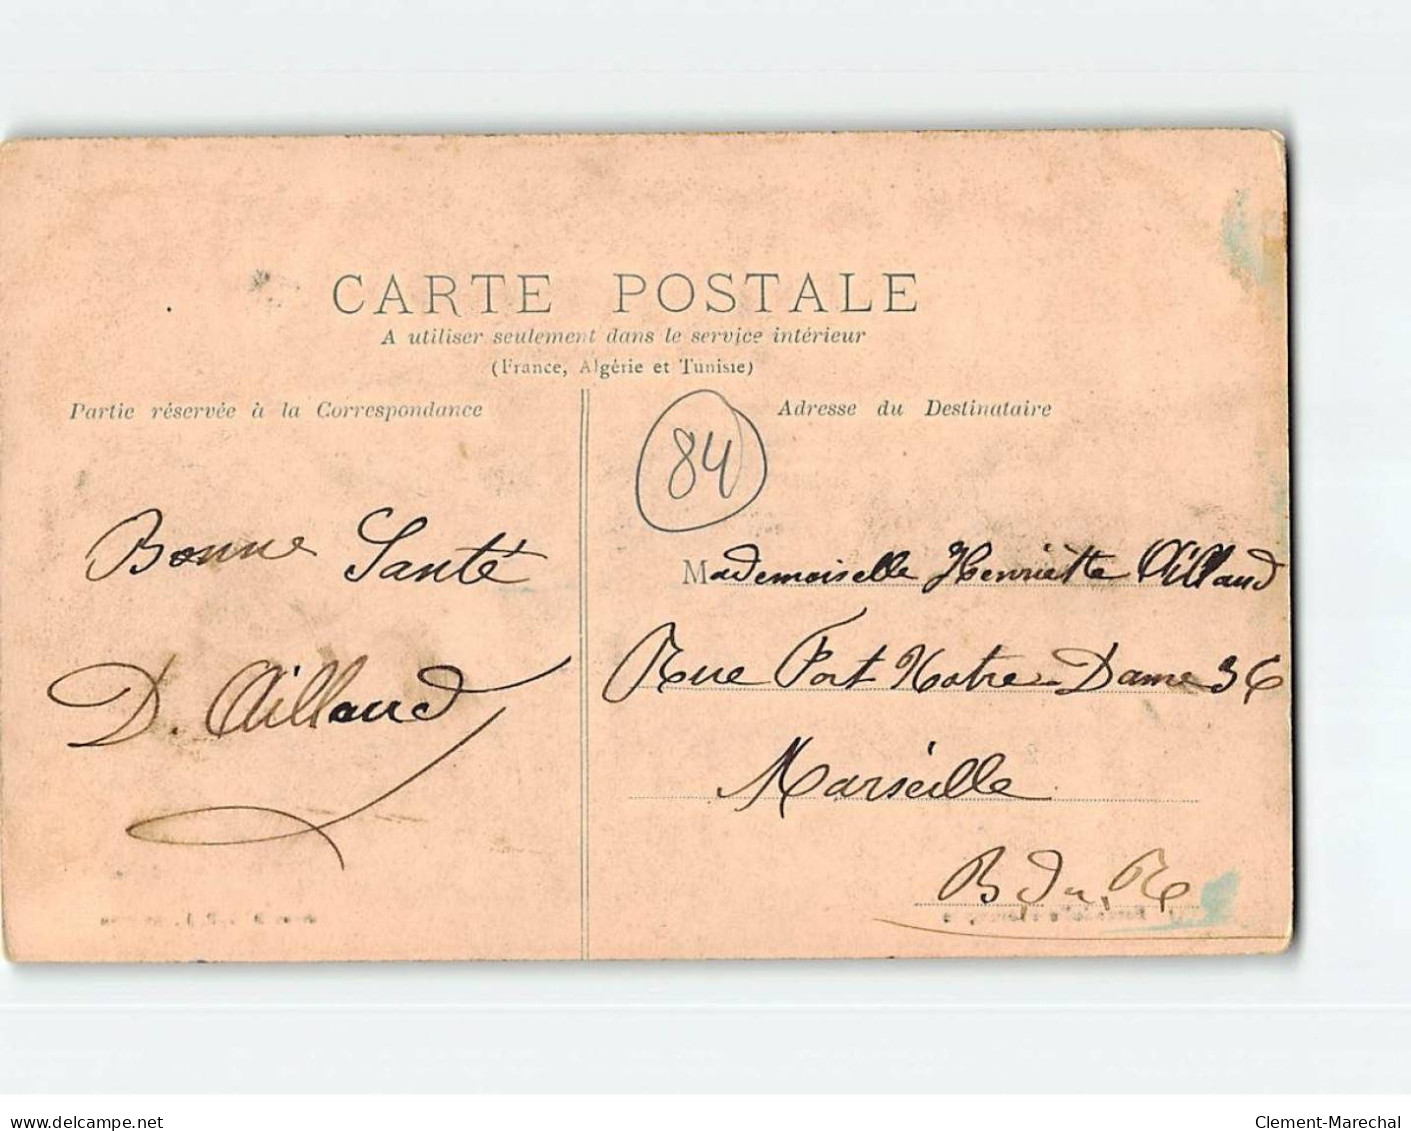 CARTE POSTALE
A utiliser seulement dans le service intérieur
(France, Algérie et Tunisie)
Partie réservée à la Correspondance
Adresse du Destinataire
84
Bonne Santé
D. Aillaud
Mademoiselle Henriette Aillaud
Rue Fort Notre-Dame 36
Marseille
B du R
delcampe.net
Clement-Marechal